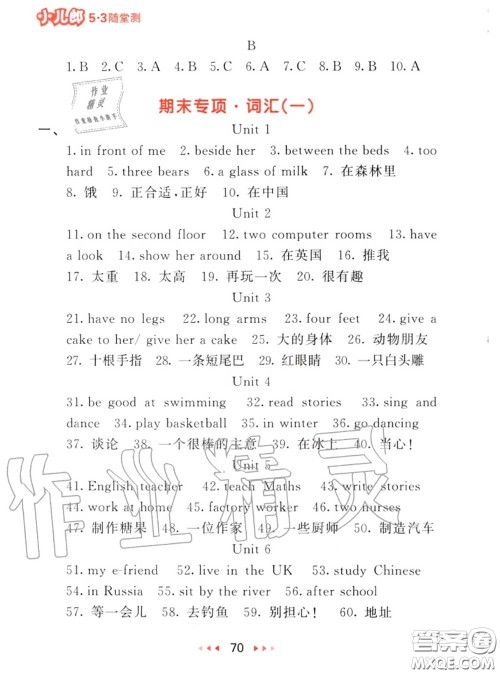 小儿郎 5·3随堂测
B
1. B 2. C 3. A 4. B 5. A 6. C 7. C 8. B 9. B 10. A
作业
精灵
作业精灵小助手
期末专项·词汇(一)
一、
Unit 1
1. in front of me 2. beside her 3. between the beds 4. too
hard 5. three bears 6. a glass of milk 7. 在森林里
8. 饿 9. 正合适,正好 10. 在中国
Unit 2
11. on the second floor 12. two computer rooms 13. have
a look 14. show her around 15. 在英国 16. 推我
17. 太重 18. 太高 19. 再玩一次 20. 很有趣
Unit 3
21. have no legs 22. long arms 23. four feet 24. give a
cake to her/ give her a cake 25. 大的身体 26. 动物朋友
27. 十根手指 28. 一条短尾巴 29. 红眼睛 30. 一只白头雕
Unit 4
31. be good at swimming 32. read stories 33. sing and
dance 34. play basketball 35. in winter 36. go dancing
37. 谈论 38. 一个很棒的主意 39. 在冰上 40. 当心!
Unit 5
41. English teacher 42. teach Maths 43. write stories
44. work at home 45. factory worker 46. two nurses
47. 制作糖果 48. 一位作家 49. 一些厨师 50. 制造汽车
Unit 6
51. my e-friend 52. live in the UK 53. study Chinese
54. in Russia 55. sit by the river 56. after school
57. 等一会儿 58. 去钓鱼 59. 别担心! 60. 地址
作业精灵
70
答案圈
MXQE.COM